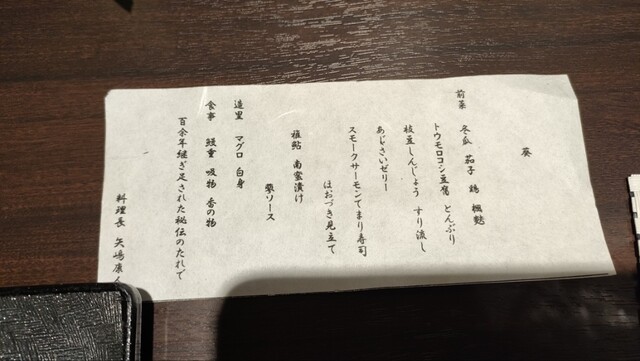 葵
前菜 冬瓜 茄子 鶏 楓麩
トウモロコシ豆腐 とんぶり
枝豆しんじょう すり流し
あじさいゼリー
スモークサーモンてまり寿司
ほおづき見立て
稚鮎 南蛮漬け
蓼ソース
造里 マグロ 白身
食事 鰻重 吸物 香の物
百余年継ぎ足された秘伝のたれで
料理長 矢嶋 康